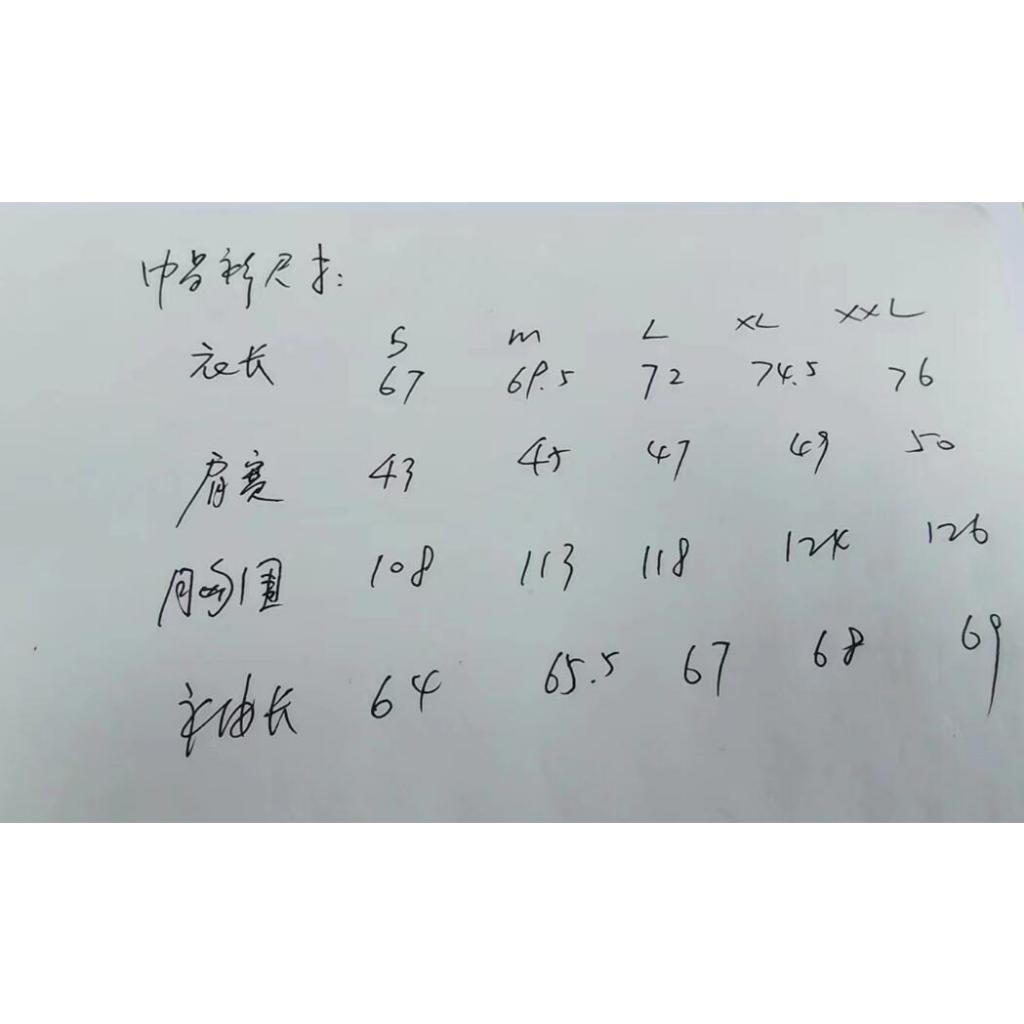 帽衫尺寸:
S m L XL XXL
衣长 67 69.5 72 74.5 76
肩宽 43 45 47 49 50
胸围 108 113 118 124 126
袖长 64 65.5 67 68 69